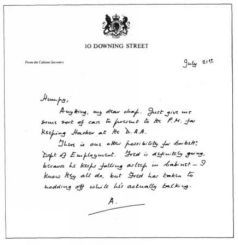 10 DOWNING STREET
From the Cabinet Secretary
July 21st
Humpy,
Anything, my dear chap. Just give me
some sort of case to present to the P.M. for
keeping Hacker at the D.A.A.
There is one other possibility for
Dept of Employment. Fred is definitely going,
because he keeps falling asleep in Cabinet - I
know they all do, but Fred has taken to
nodding off while he's actually talking.
A.